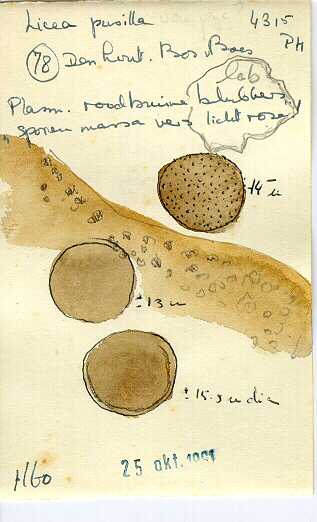 Licea pusilla
4315
PH
78 Den hout. Bos Baes
lob
Plasm. roodbruine blubbers,
sporen massa vers licht rose
14 u
± 13 u
± 15.5 u dia
H60
25 okt.